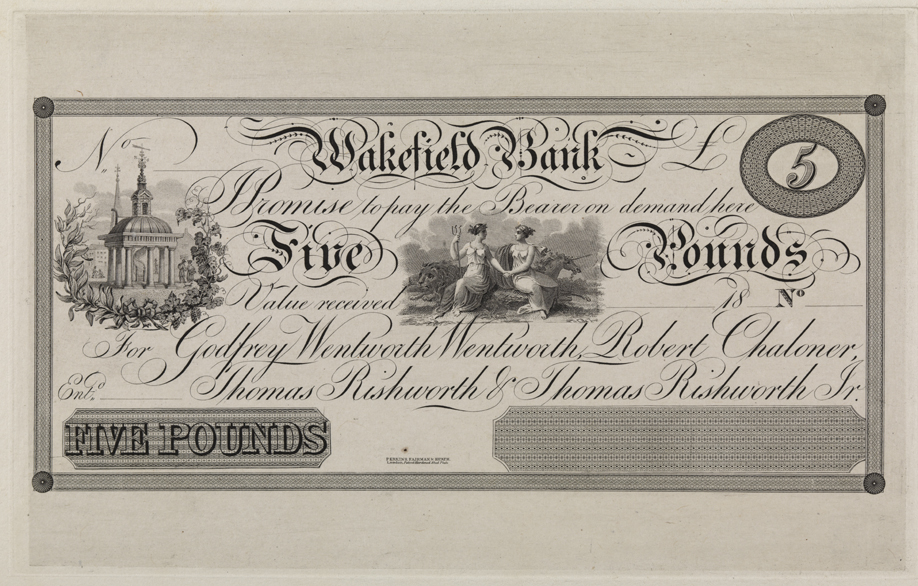 No. Wakefield Bank £ 5
I Promise to pay the Bearer on demand here
Five Pounds
Value received 18 No
For Godfrey Wentworth Wentworth, Robert Chaloner,
Entd. Thomas Rishworth & Thomas Rishworth Jr.
FIVE POUNDS
PERKINS, FAIRMAN & HEATH